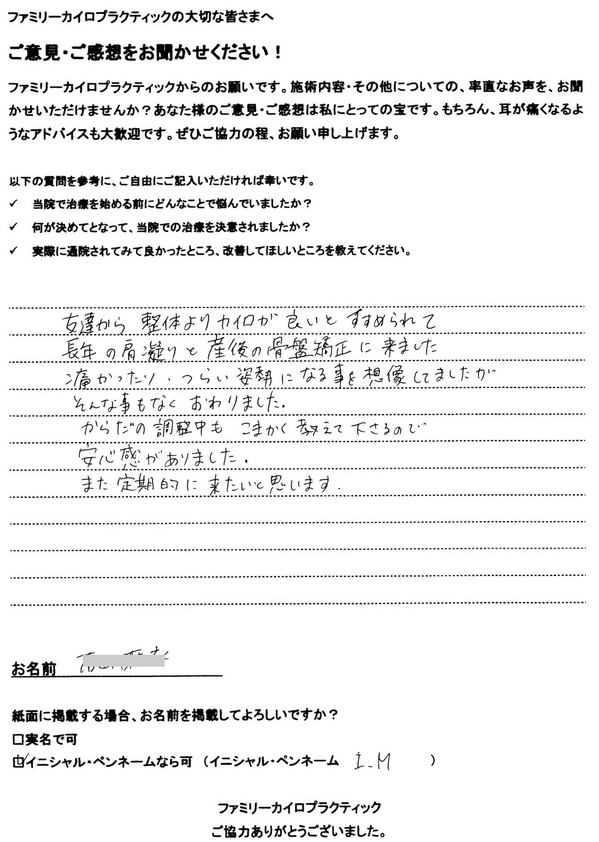 ファミリーカイロプラクティックの大切な皆さまへ
ご意見・ご感想をお聞かせください！
ファミリーカイロプラクティックからのお願いです。施術内容・その他についての、率直なお声を、お聞
かせいただけませんか？あなた様のご意見・ご感想は私にとっての宝です。もちろん、耳が痛くなるよ
うなアドバイスも大歓迎です。ぜひご協力の程、お願い申し上げます。
以下の質問を参考に、ご自由にご記入いただければ幸いです。
✓ 当院で治療を始める前にどんなことで悩んでいましたか？
✓ 何が決めてとなって、当院での治療を決意されましたか？
✓ 実際に通院されてみて良かったところ、改善してほしいところを教えてください。
友達から 整体よりカイロが良いと すすめられて
長年の肩凝りと産後の骨盤矯正に来ました
痛かったり、つらい姿勢になる事を想像してましたが
そんな事もなく おわりました。
からだの調整中も こまかく教えて下さるので
安心感がありました。
また定期的に来たいと思います.
お名前
紙面に掲載する場合、お名前を掲載してよろしいですか？
□実名で可
☑イニシャル・ペンネームなら可 （イニシャル・ペンネーム I.M ）
ファミリーカイロプラクティック
ご協力ありがとうございました。